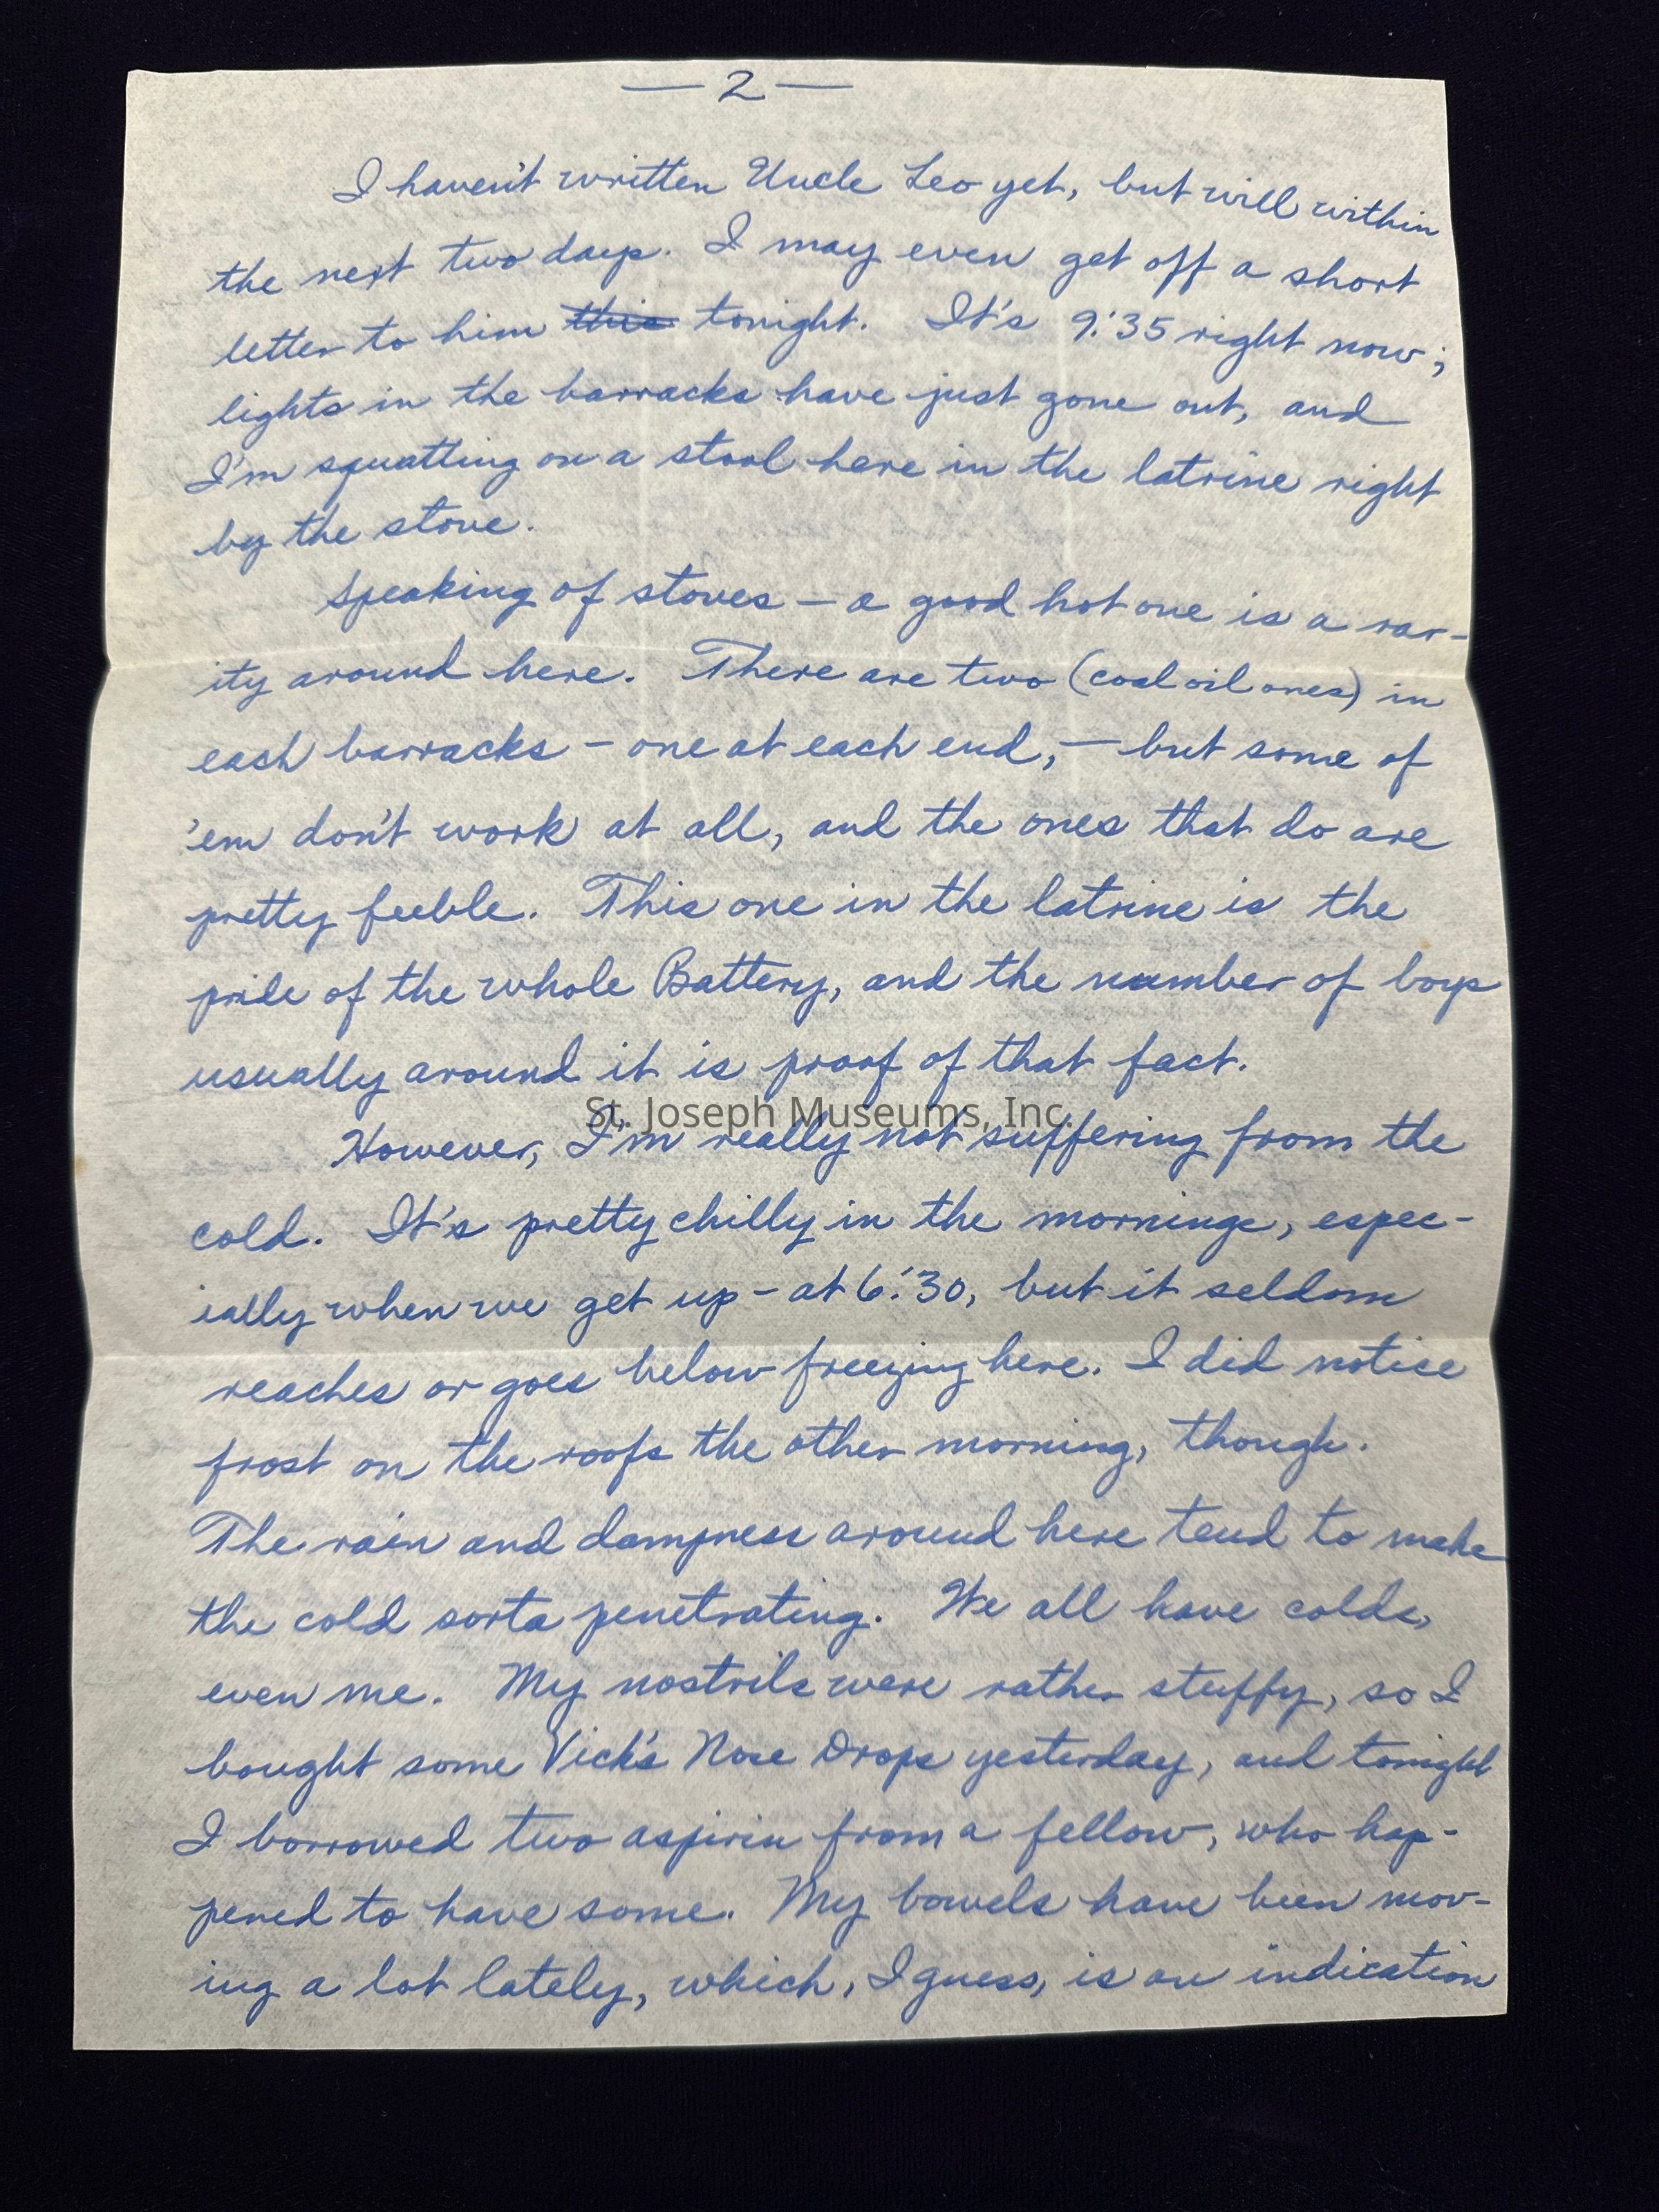 — 2 —
I haven't written Uncle Leo yet, but will within
the next two days. I may even get off a short
letter to him this tonight. It's 9:35 right now;
lights in the barracks have just gone out, and
I'm squatting on a stool here in the latrine right
by the stove.
Speaking of stoves — a good hot one is a rar-
ity around here. There are two (coal oil ones) in
each barracks — one at each end, — but some of
'em don't work at all, and the ones that do are
pretty feeble. This one in the latrine is the
pride of the whole Battery, and the number of boys
usually around it is proof of that fact.
St. Joseph Museums, Inc.
However, I'm really not suffering from the
cold. It's pretty chilly in the mornings, espec-
ially when we get up - at 6:30, but it seldom
reaches or goes below freezing here. I did notice
frost on the roofs the other morning, though.
The rain and dampness around here tend to make
the cold sorta penetrating. We all have colds,
even me. My nostrils were rather stuffy, so I
bought some Vick's Nose Drops yesterday, and tonight
I borrowed two aspirin from a fellow, who hap-
pened to have some. My bowels have been mov-
ing a lot lately, which, I guess, is an indication